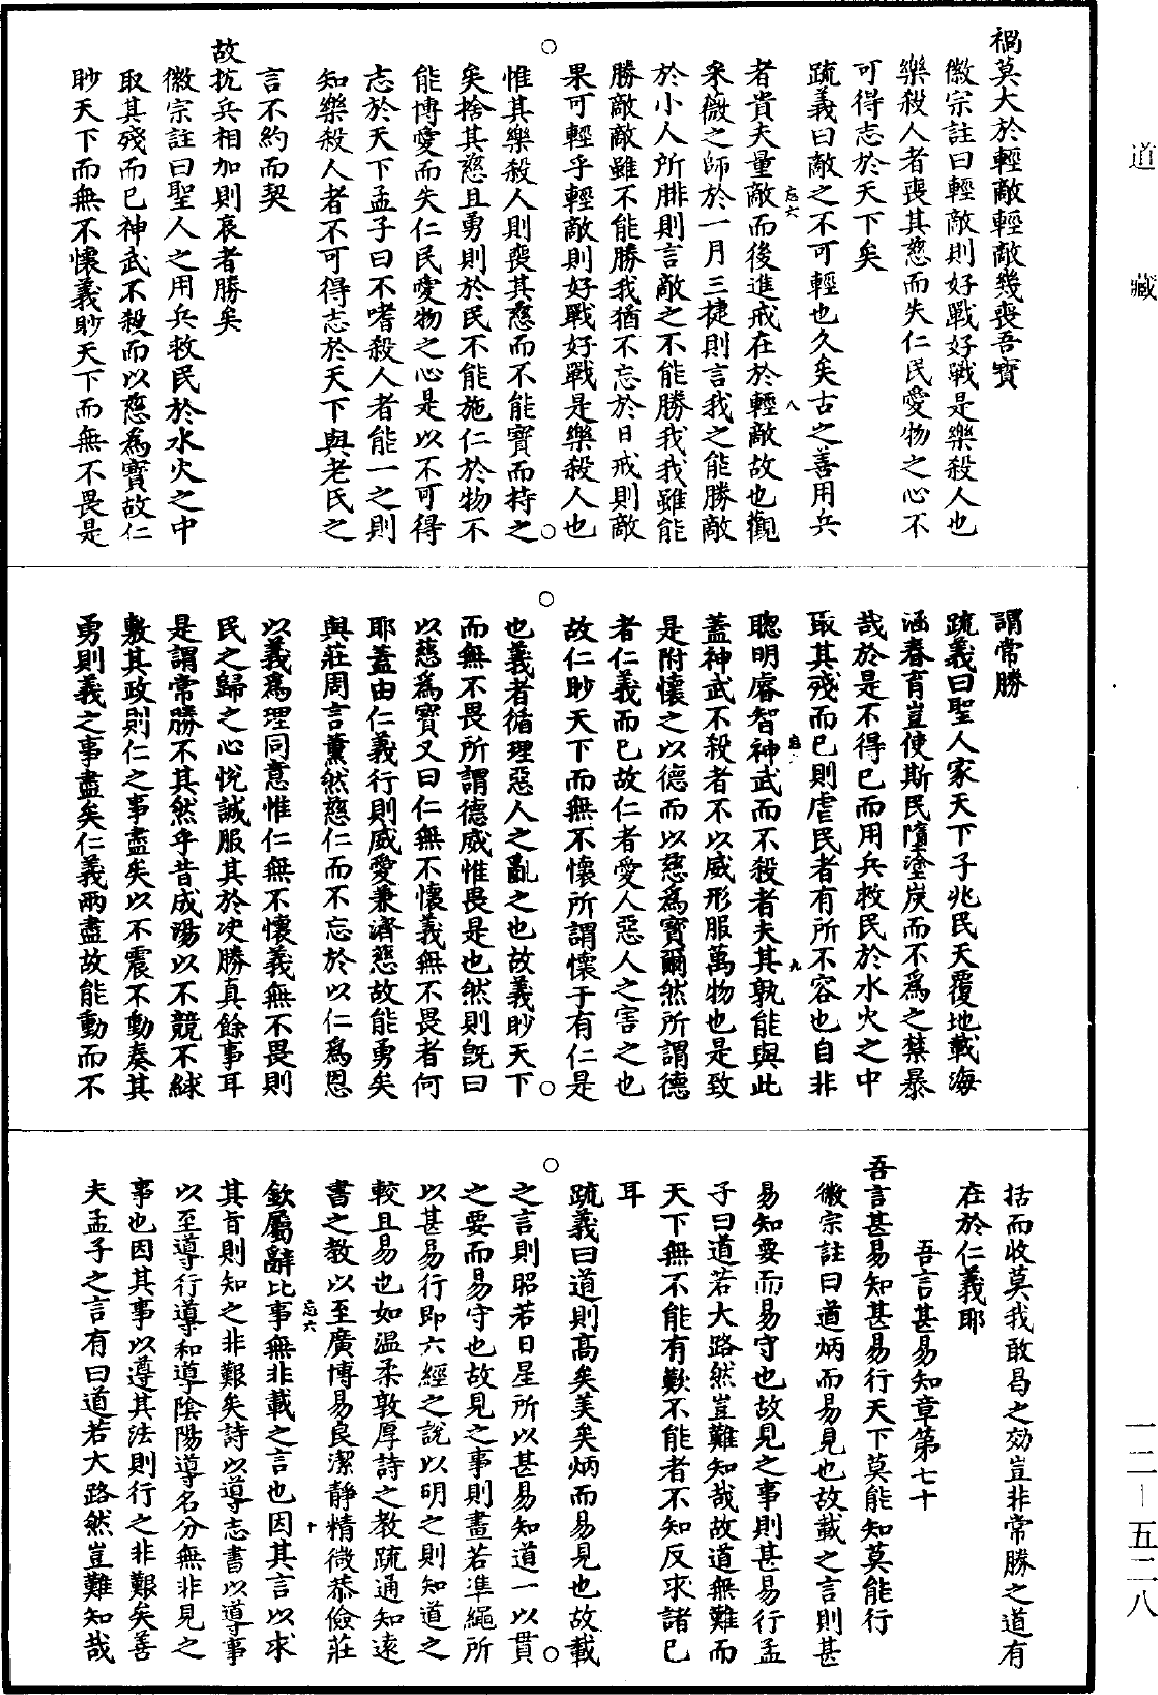 道藏
一二—五二八
禍莫大於輕敵輕敵幾喪吾寶
徽宗註曰輕敵則好戰好戰是樂殺人也
樂殺人者喪其慈而失仁民愛物之心不
可得志於天下矣
疏義曰敵之不可輕也久矣古之善用兵
者貴夫量敵而後進戒在於輕敵故也觀
采薇之師於一月三捷則言我之能勝敵
於小人所腓則言敵之不能勝我我雖能
勝敵敵雖不能勝我猶不忘於日戒則敵
果可輕乎輕敵則好戰好戰是樂殺人也
惟其樂殺人則喪其慈而不能寶而持之
矣捨其慈且勇則於民不能施仁於物不
能博愛而失仁民愛物之心是以不可得
志於天下孟子曰不嗜殺人者能一之則
知樂殺人者不可得志於天下與老氏之
言不約而契
故抗兵相加則哀者勝矣
徽宗註曰聖人之用兵救民於水火之中
取其殘而已神武不殺而以慈為寶故仁
眇天下而無不懷義眇天下而無不畏是
謂常勝
疏義曰聖人家天下子兆民天覆地載海
涵春育豈使斯民墮塗炭而不為之禁暴
哉於是不得已而用兵救民於水火之中
取其殘而已則虐民者有所不容也自非
聰明睿智神武而不殺者夫其孰能與此
蓋神武不殺者不以威形服萬物也是致
是附懷之以德而以慈為寶爾然所謂德
者仁義而已故仁者愛人惡人之害之也
故仁眇天下而無不懷所謂懷于有仁是
也義者循理惡人之亂之也故義眇天下
而無不畏所謂德威惟畏是也然則既曰
以慈為寶又曰仁無不懷義無不畏者何
耶蓋由仁義行則威愛兼濟慈故能勇矣
與莊周言薰然慈仁而不忘於以仁為恩
以義為理同意惟仁無不懷義無不畏則
民之歸之心悅誠服其於决勝真餘事耳
是謂常勝不其然乎昔成湯以不競不絿
敷其政則仁之事盡矣以不震不動奏其
勇則義之事盡矣仁義兩盡故能動而不
括而收莫我敢曷之効豈非常勝之道有
在於仁義耶
吾言甚易知章第七十
吾言甚易知甚易行天下莫能知莫能行
徽宗註曰道炳而易見也故載之言則甚
易知要而易守也故見之事則甚易行孟
子曰道若大路然豈難知哉故道無難而
天下無不能有歎不能者不知反求諸已
耳
疏義曰道則高矣美矣炳而易見也故載
之言則昭若日星所以甚易知道一以貫
之要而易守也故見之事則畫若準繩所
以甚易行即六經之說以明之則知道之
較且易也如温柔敦厚詩之教疏通知遠
書之教以至廣博易良潔靜精微恭儉莊
欽屬辭比事無非載之言也因其言以求
其旨則知之非艱矣詩以導志書以導事
以至導行導和導陰陽導名分無非見之
事也因其事以遵其法則行之非艱矣善
夫孟子之言有曰道若大路然豈難知哉
忘六
八
九
忘六
十